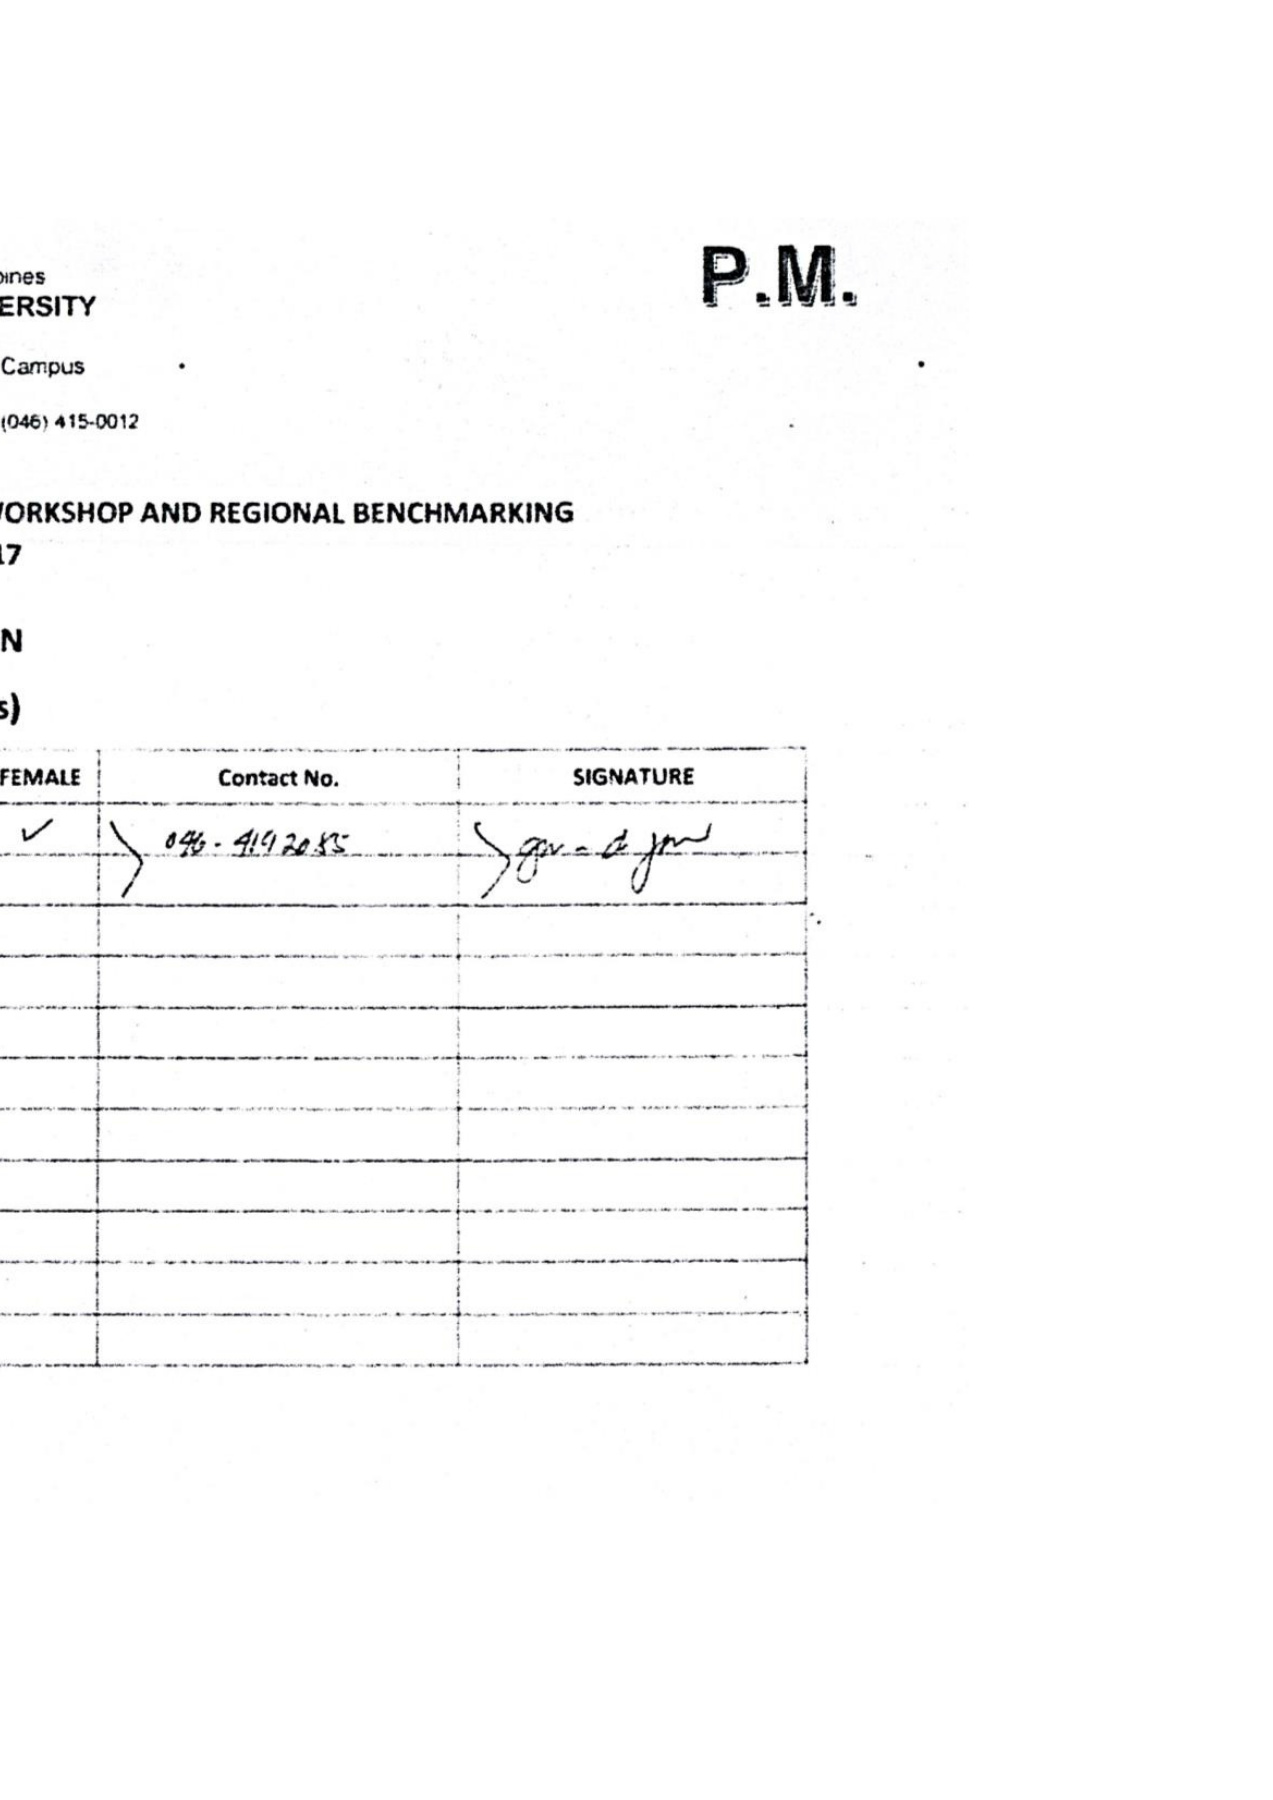 P.M.
pines
ERSITY
Campus
(046) 415-0012
WORKSHOP AND REGIONAL BENCHMARKING
17
N
s)
FEMALE Contact No. SIGNATURE
✓ 046-4192055